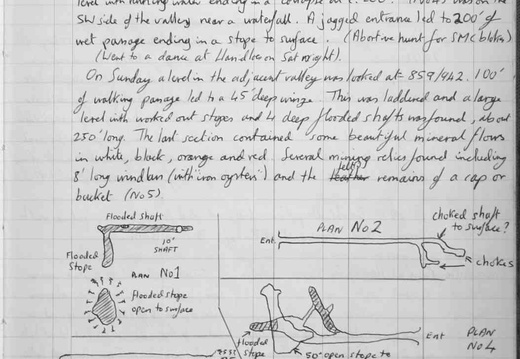 level with running water ending in a collapse at
SW side of the valley near a waterfall. A jagged entrance led to 200' of
wet passage ending in a stope to surface. (Abortive hunt for SMC blokes)
(Went to a dance at Llandloes Sat night).
On Sunday a level in the adjacent valley was looked at - 859/942. 100'
of walking passage led to a 45' deep winze. This was laddered and a large
level with worked out stopes and 4 deep flooded shafts was found, about
250' long. The last section contained some beautiful mineral flows
in white, black, orange and red. Several mining relics found including
8' long windlass (with "iron oysters") and the felt? remains of a cap or
bucket (No5).
Flooded shaft
10'
SHAFT
Flooded
Stope
PLAN No1
Flooded stope
open to surface
PLAN No2
Ent.
choked shaft
to surface?
chokes
flooded
stope
50' open stope to
Ent
PLAN
No4